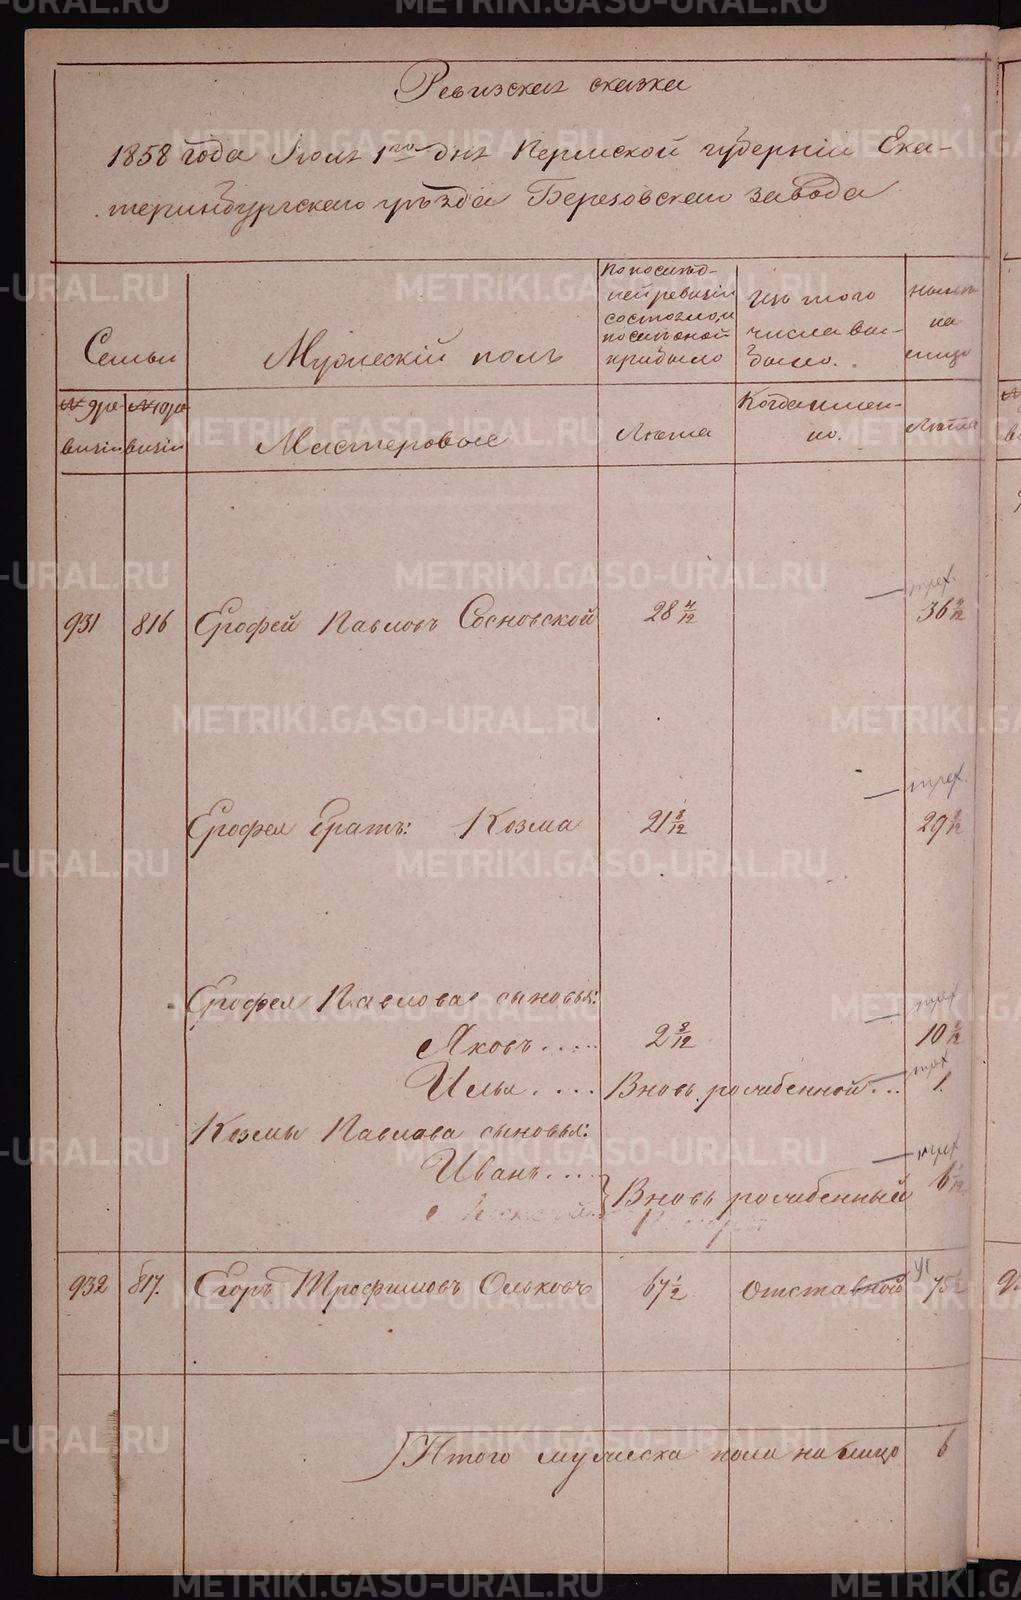 Ревизская сказка
1858 года Iюля 1го дня Пермской губернiи Ека-
теринбургскаго уѣзда Березовскаго завода
Семьи
Мужескiй полъ
По послѣд-
ней ревизiи
состояло, и
послѣ оной
прибыло
Изъ того
числа вы-
было.
Нынѣ
на
лицо
№ 9 ре-
визiи
№ 10 ре-
визiи
Мастеровые
Лѣта
Когда имен-
но.
Лѣта
931 816 Ерофей Павловъ Сосновской 28 4/12 36
Ерофея братъ: Козма 21 8/12 29 8/12
Ерофея Павлова сыновья:
Яковъ..... 2 8/12 10 8/12
Илья..... Вновь рожденной... 1.
Козмы Павлова сыновья:
Иванъ....
Вновь рожденный 6
932 817. Егоръ Трофимовъ Ольковъ 67 1/2 Отставной 75 1/2
Итого мужеска пола на лицо 6
METRIKI.GASO-URAL.RU